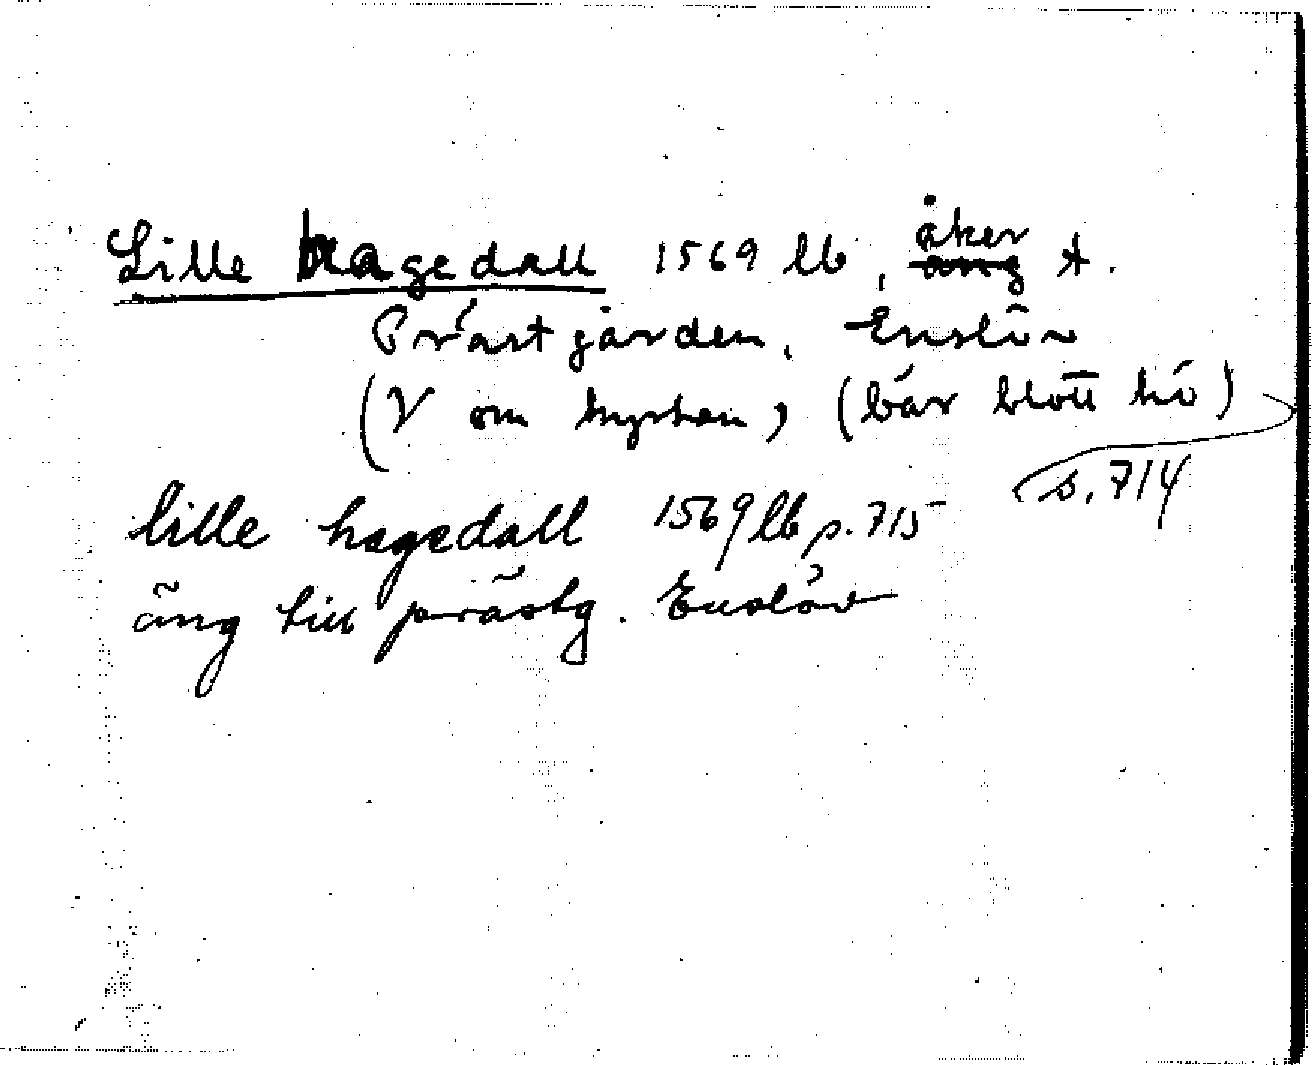 Lille hagedall 1569 lb, åker t.
Prästgården, Enslöv
(V om kyrkan) (bär blott hö)
s. 714
lille hagedall 1569 lb s. 715
äng till prästg. Enslöv